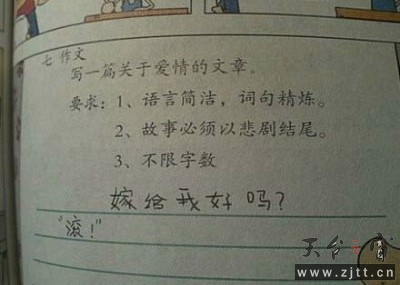 七 作文
写一篇关于爱情的文章。
要求：1、语言简洁，词句精炼。
2、故事必须以悲剧结尾。
3、不限字数
嫁给我好吗？
"滚！"
www.zjtt.cn